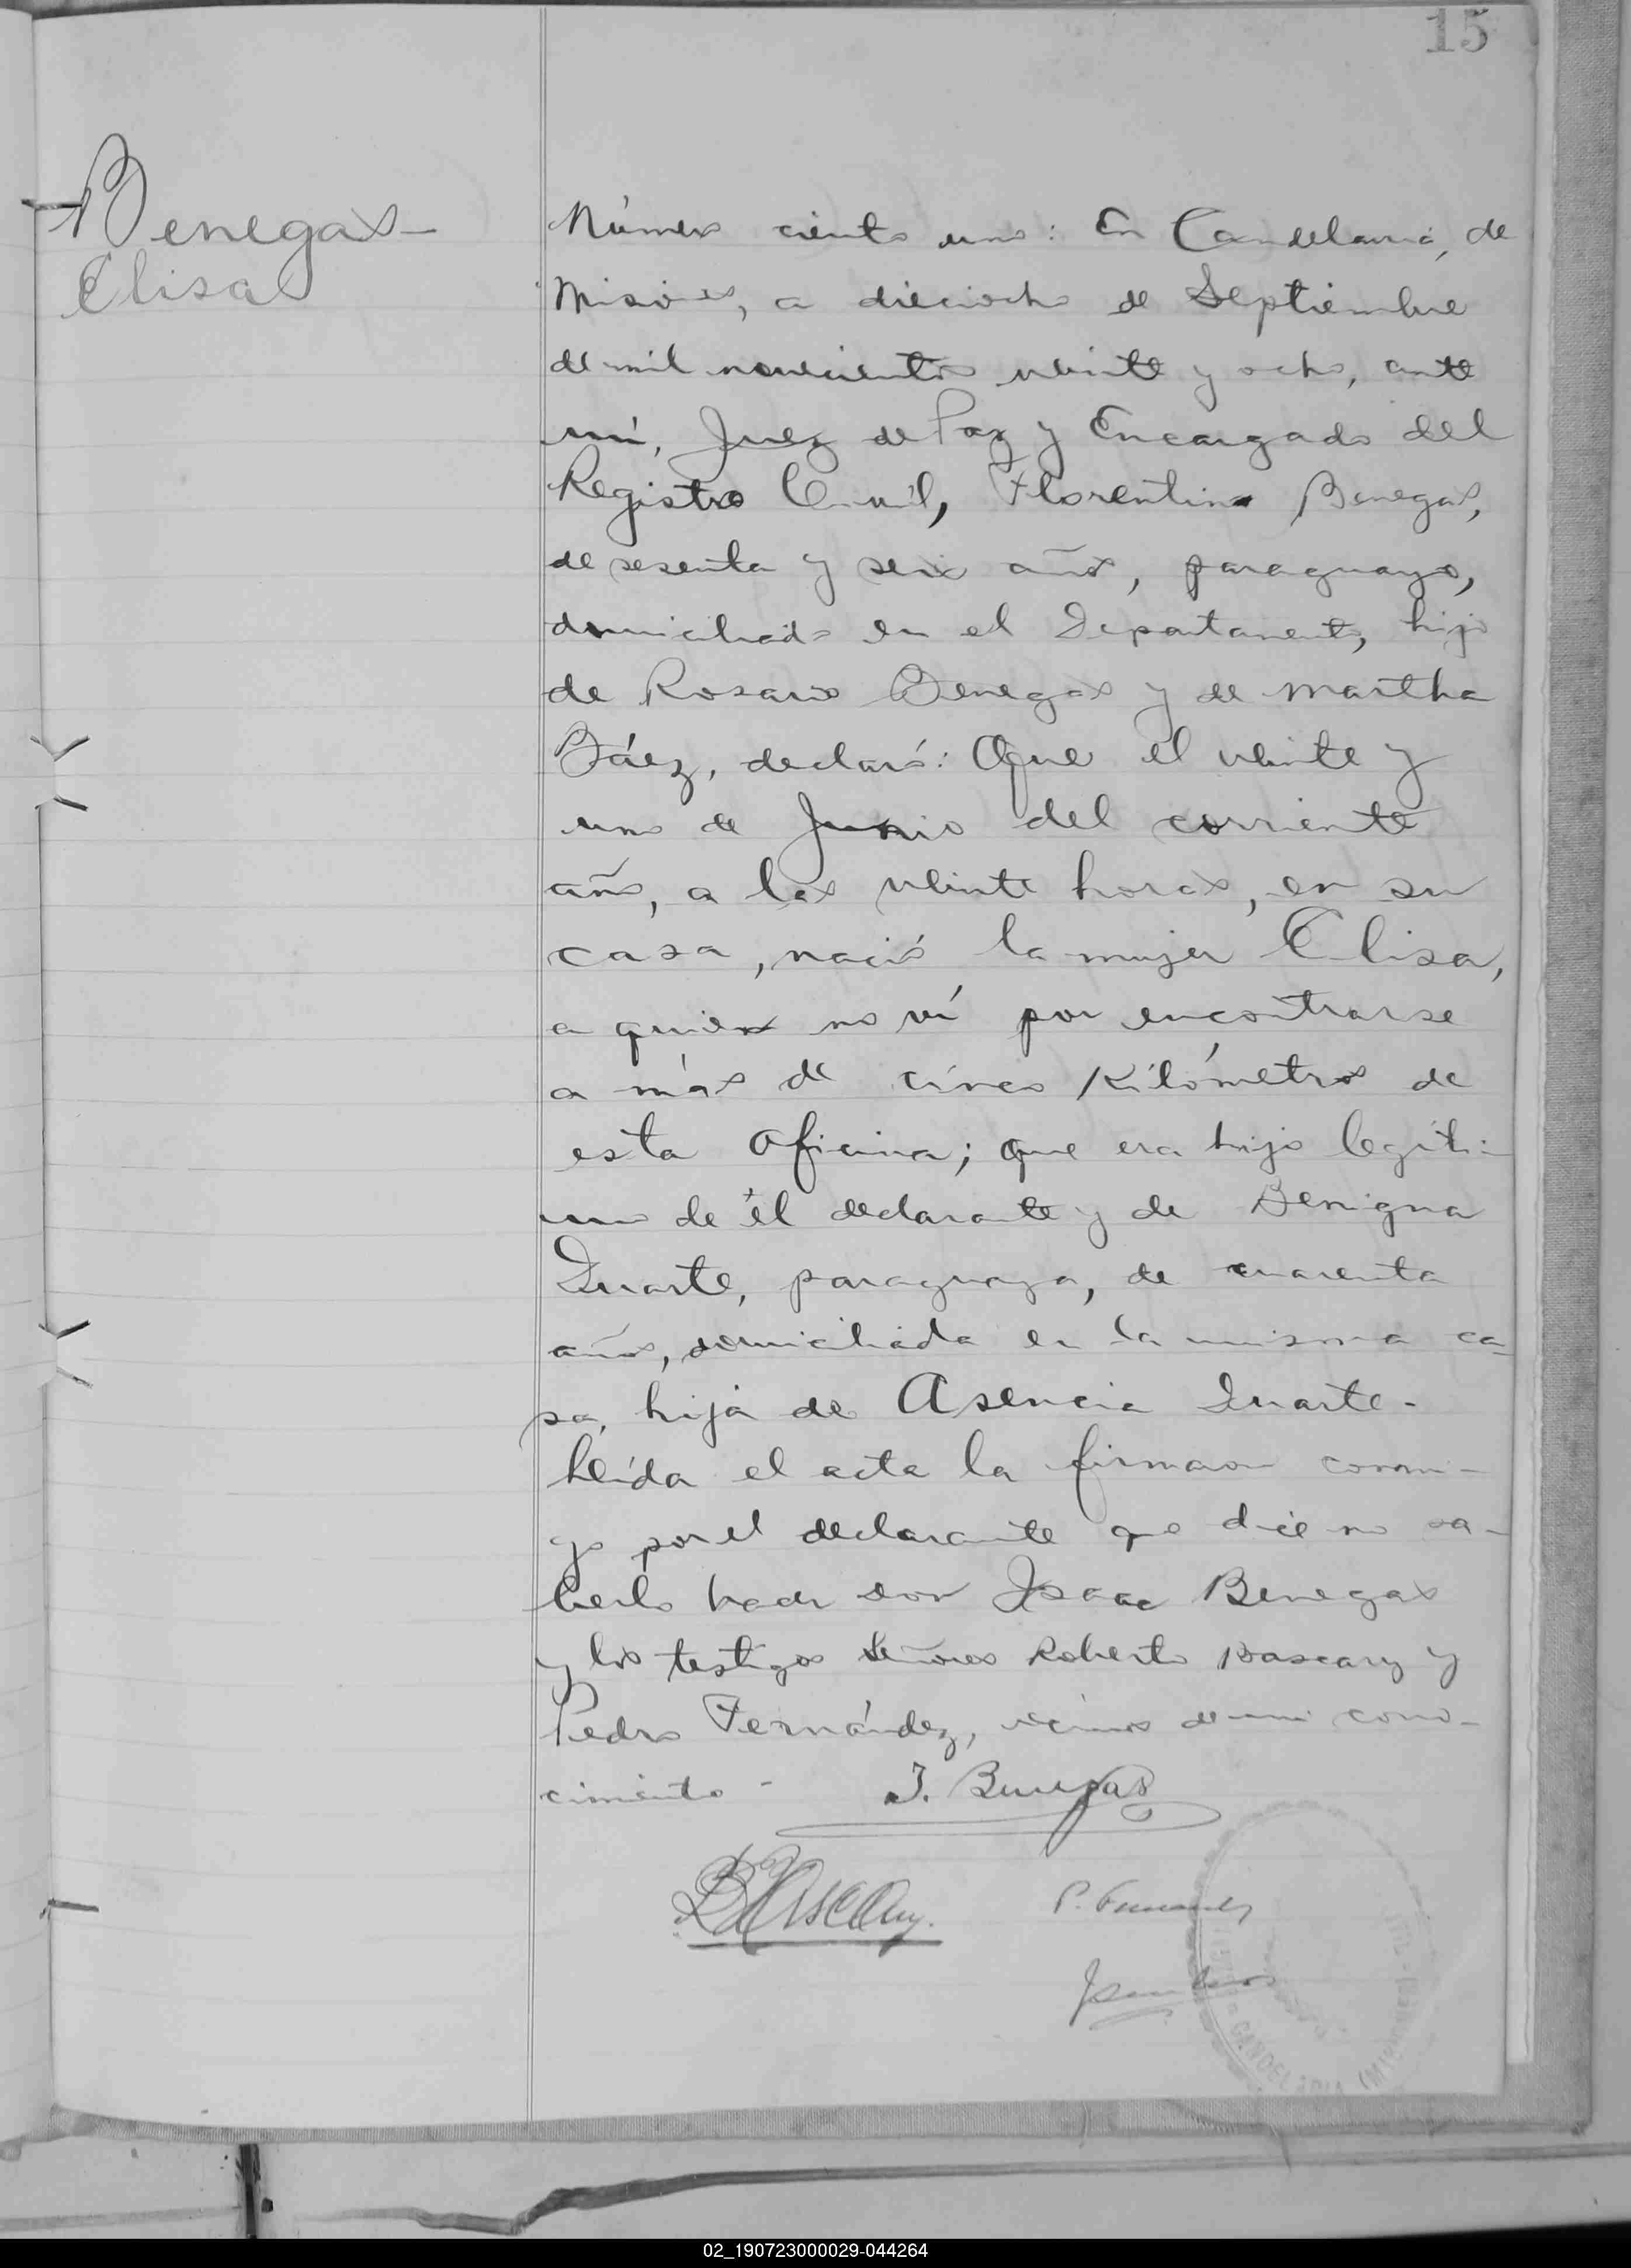 15
Benegas-
Elisa
Número ciento uno: En Candelaria, de
Misiones, a dieciocho de Septiembre
de mil novecientos veinte y ocho, ante
mí, Juez de Paz y Encargado del
Registro Civil, Florentino Benegas,
de sesenta y seis años, paraguayo,
domiciliado en el Departamento, hijo
de Rosario Benegas y de Martha
Báez, declaró: Que el veinte y
uno de Junio del corriente
año, a las veinte horas, en su
casa, nació la mujer Elisa,
a quien no ví por encontrarse
a más de cinco Kilómetros de
esta Oficina; que era hijo legíti-
mo de él declarante y de Benigna
Duarte, paraguaya, de cuarenta
años, domiciliada en la misma ca-
sa, hija de Asencia Duarte.
Leída el acta la firmaron conmi-
go por el declarante que dice no sa-
berlo hacer don Isaac Benegas
y los testigos Señores Roberto Bascary y
Pedro Fernández, vecinos de mi cono-
cimiento -
I. Benegas
RBascary.
P. Fernandez
CANDELARIA (Misiones)
02_190723000029-044264